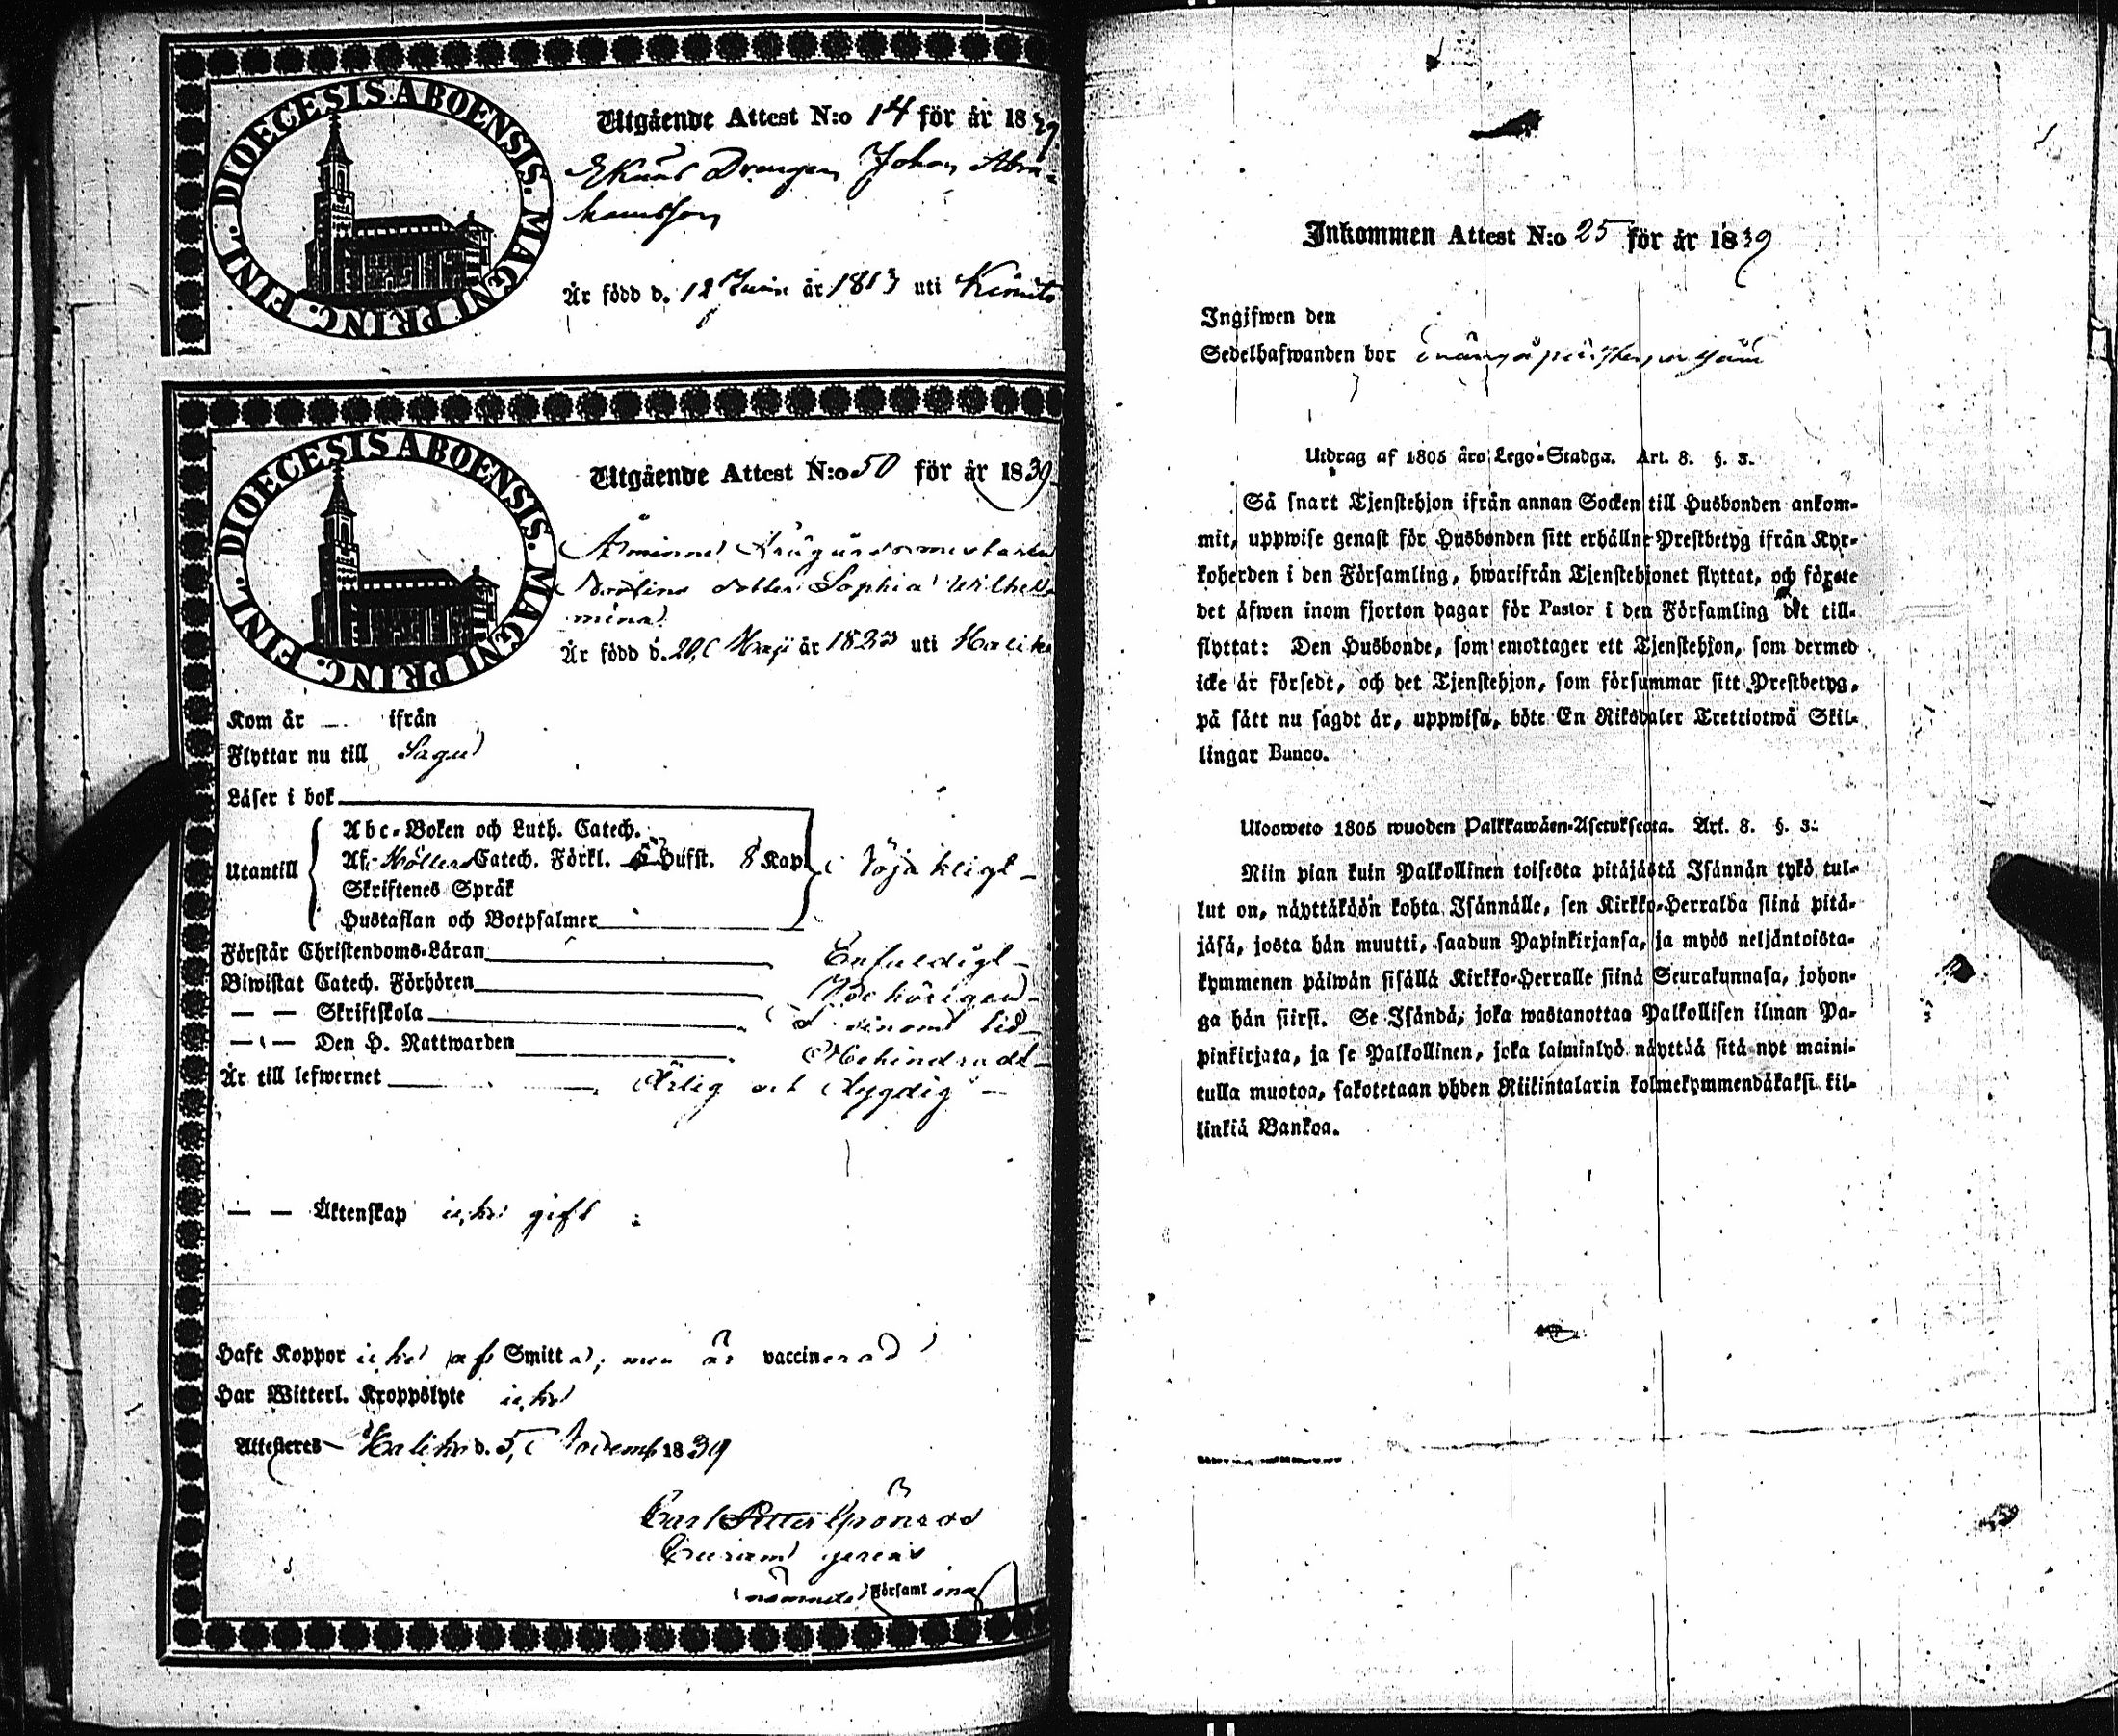 DIOECESIS ABOENSIS. MAGNI PRINC. FINL.
Utgående Attest N:o 14 för år 1839
Drengen Johan Abra-
hamsson
Är född d. 12 Junii år 1813 uti Kimito
DIOECESIS ABOENSIS. MAGNI PRINC. FINL.
Utgående Attest N:o 50 för år 1839
dotter Sophia Wilhel-
mina
Är född d. 20, Maji år 1823 uti Haliko
Kom år — ifrån
Flyttar nu till Sagu
Läser i bok
Utantill
Abc-Boken och Luth. Catech.
Af Möllers Catech. Förkl. Hufst. 8 Kap. Nöjakligt
Skriftenes Språk
Hustaflan och Botpsalmer
Förstår Christendoms-Läran Enfaldigt
Biwistat Catech. Förhören
— — Skriftskola tid
— — Den H. Nattwarden Ohehindradt
Är till lefwernet Ärlig och dygdig
— — Äktenskap icke gift
Haft Koppor icke af Smitta; men är vaccinerad
Har Witterl. Kroppslyte icke
Attesteras Haliko d. 5, Novemb. 1839
Carl Petter Grönroos
nämnde Församling
Inkommen Attest N:o 25 för år 1839
Ingifwen den
Sedelhafwanden bor
Utdrag af 1805 års Lego-Stadga. Art. 8. §. 3.
Så snart Tjenstehjon ifrån annan Socken till Husbonden ankom-
mit, uppwise genast för Husbonden sitt erhållne Prestbetyg ifrån Kyr-
koherden i den Församling, hwarifrån Tjenstehjonet flyttat, och förete
det äfwen inom fjorton dagar för Pastor i den Församling dit till-
flyttat: Den Husbonde, som emottager ett Tjenstehjon, som dermed
icke är försedt, och det Tjenstehjon, som försummar sitt Prestbetyg,
på sätt nu sagdt är, uppwisa, böte En Riksdaler Trettiotwå Skil-
lingar Banco.
Ulosweto 1805 wuoden Palkkawäen-Asetuksesta. Art. 8. §. 3.
Niin pian kuin Palkollinen toisesta pitäjästä Isännän tykö tul-
lut on, näyttäköön kohta Isännälle, sen Kirkko-Herralda siinä pitä-
jäsä, josta hän muutti, saadun Papinkirjansa, ja myös neljäntoista-
kymmenen päiwän sisällä Kirkko-Herralle siinä Seurakunnasa, johon-
ga hän siirsi. Se Isändä, joka wastanottaa Palkollisen ilman Pa-
pinkirjata, ja se Palkollinen, joka laiminlyö näyttää sitä nyt maini-
tulla muotoa, sakotetaan yhden Riikintalarin kolmekymmendäkaksi kil-
linkiä Bankoa.